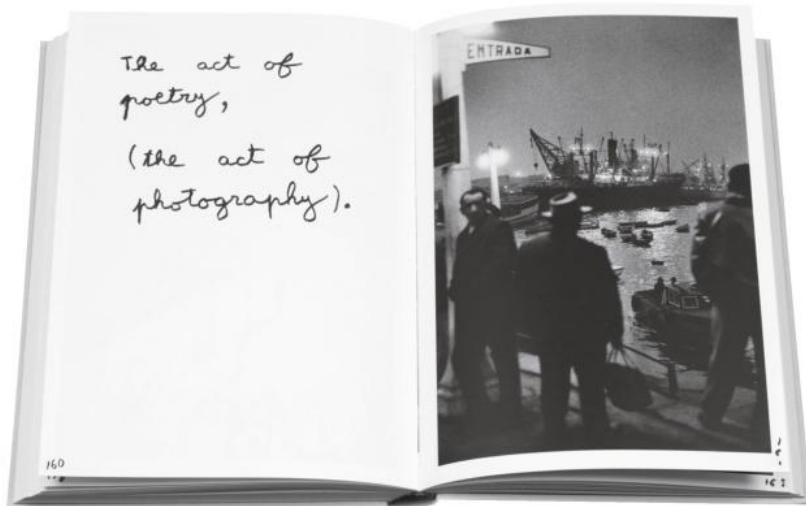 The act of
poetry,
(the act of
photography).
160
ENTRADA